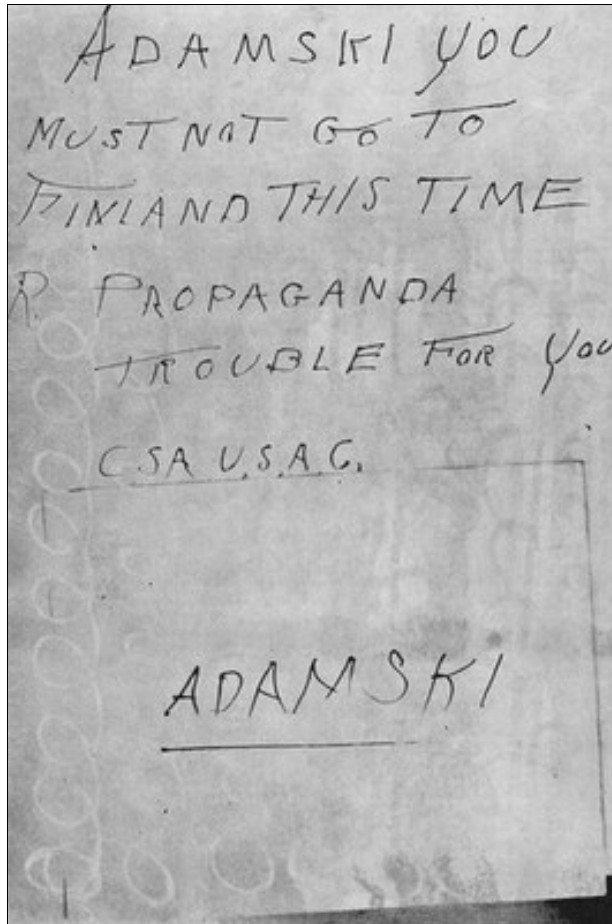 ADAMSKI YOU
MUST NOT GO TO
FINLAND THIS TIME
R. PROPAGANDA
TROUBLE FOR YOU
CSA U.S.A.G.
ADAMSKI